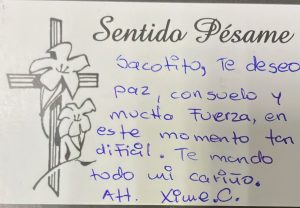 Sentido Pésame
Sacotito, Te deseo
paz, consuelo y
mucha Fuerza, en
este momento tan
dificil. Te mando
todo mi cariño.
Att. Xime.C.